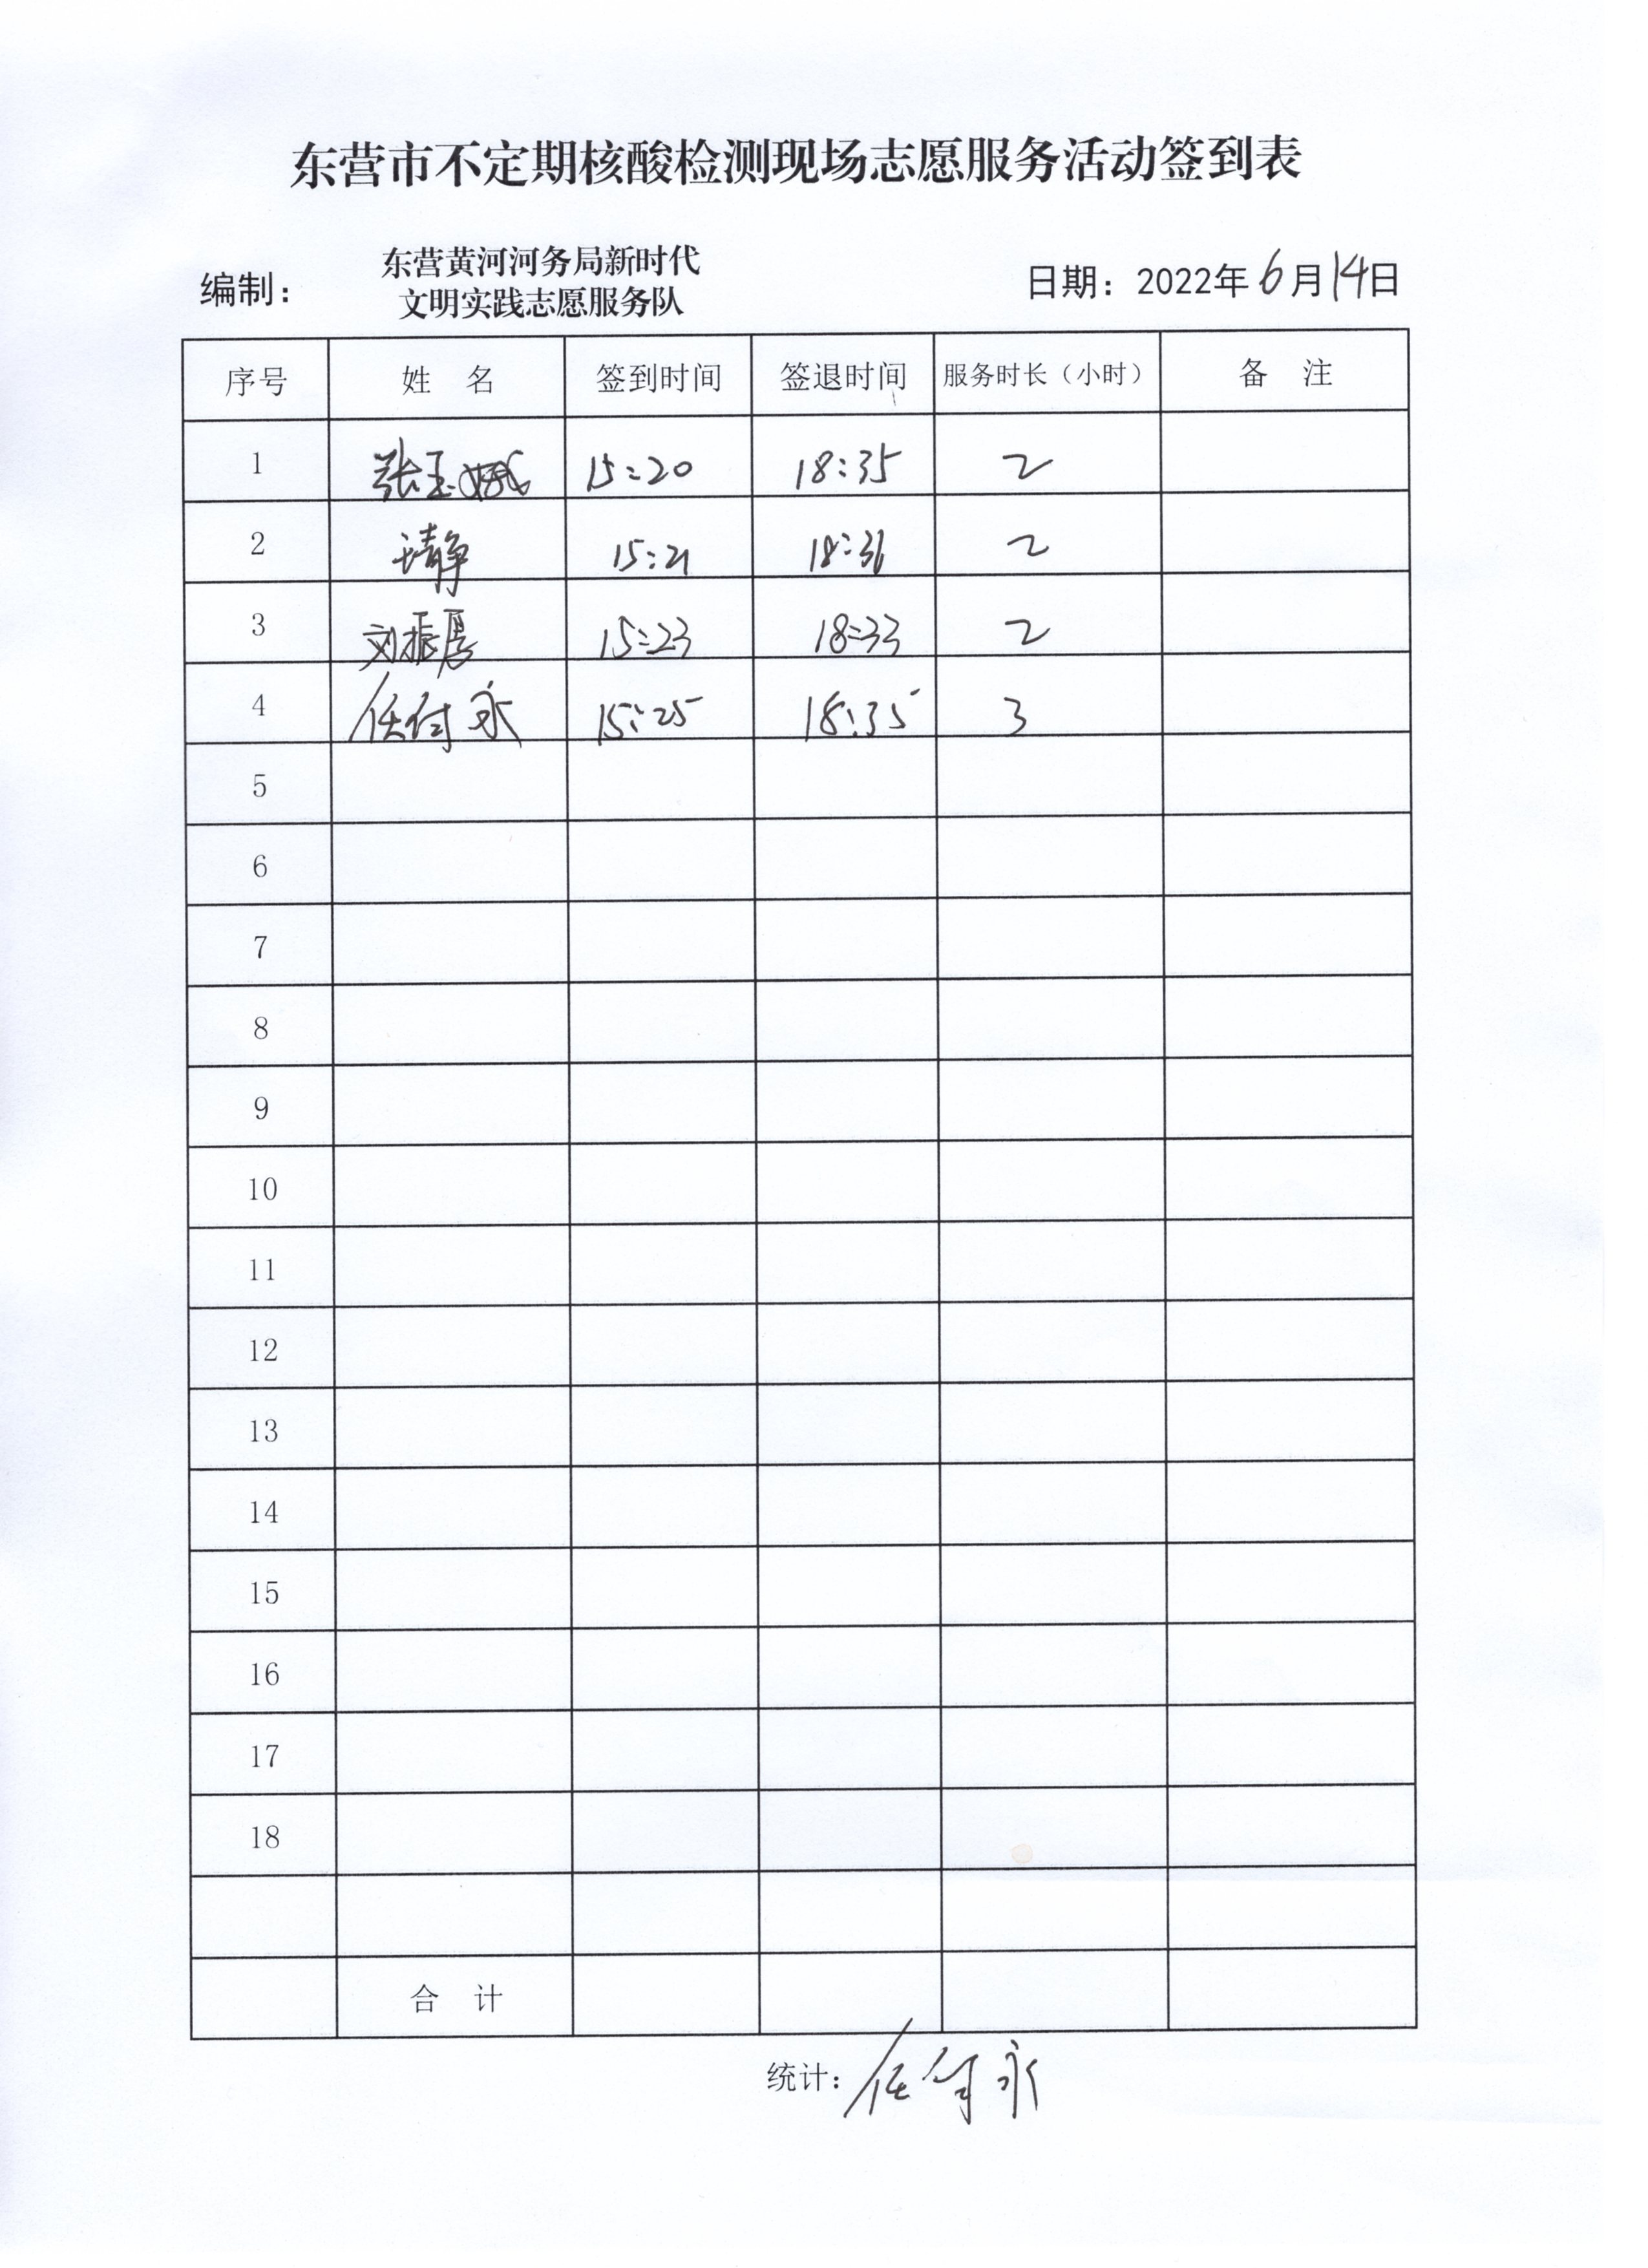 东营市不定期核酸检测现场志愿服务活动签到表
编制： 东营黄河河务局新时代 日期：2022年6月14日
文明实践志愿服务队
序号 姓 名 签到时间 签退时间 服务时长（小时） 备 注
1 张玉 15:20 18:35 2
2 静 15:21 18:36 2
3 刘振 15:23 18:33 2
4 任付永 15:25 18:35 3
5
6
7
8
9
10
11
12
13
14
15
16
17
18
合 计
统计：任付永